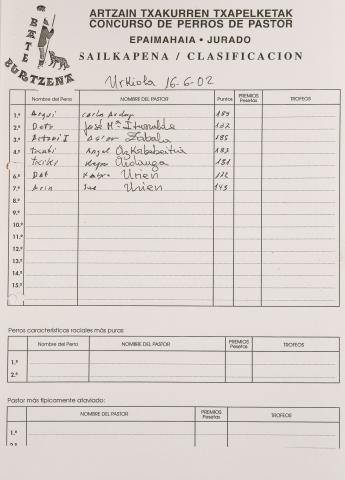 BATE BURTZENA
ARTZAIN TXAKURREN TXAPELKETAK
CONCURSO DE PERROS DE PASTOR
EPAIMAHAIA • JURADO
SAILKAPENA / CLASIFICACION
Urkiola 16-6-02
Nombre del Perro NOMBRE DEL PASTOR Puntos PREMIOS Pesetas TROFEOS
1.º Argui Carlos 189
2.º José Mª Iturralde 187
3.º Artzai I Zabala 185
4.º Txabi Angel Azkarbebeitia 183
5.º Txiki 151
6.º Urien
7.º Urien 143
8.º
9.º
10.º
11.º
12.º
13.º
14.º
15.º
Perros características raciales más puras:
Nombre del Perro NOMBRE DEL PASTOR PREMIOS Pesetas TROFEOS
1.º
2.º
Pastor más típicamente ataviado:
NOMBRE DEL PASTOR PREMIOS Pesetas TROFEOS
1.º
2.º